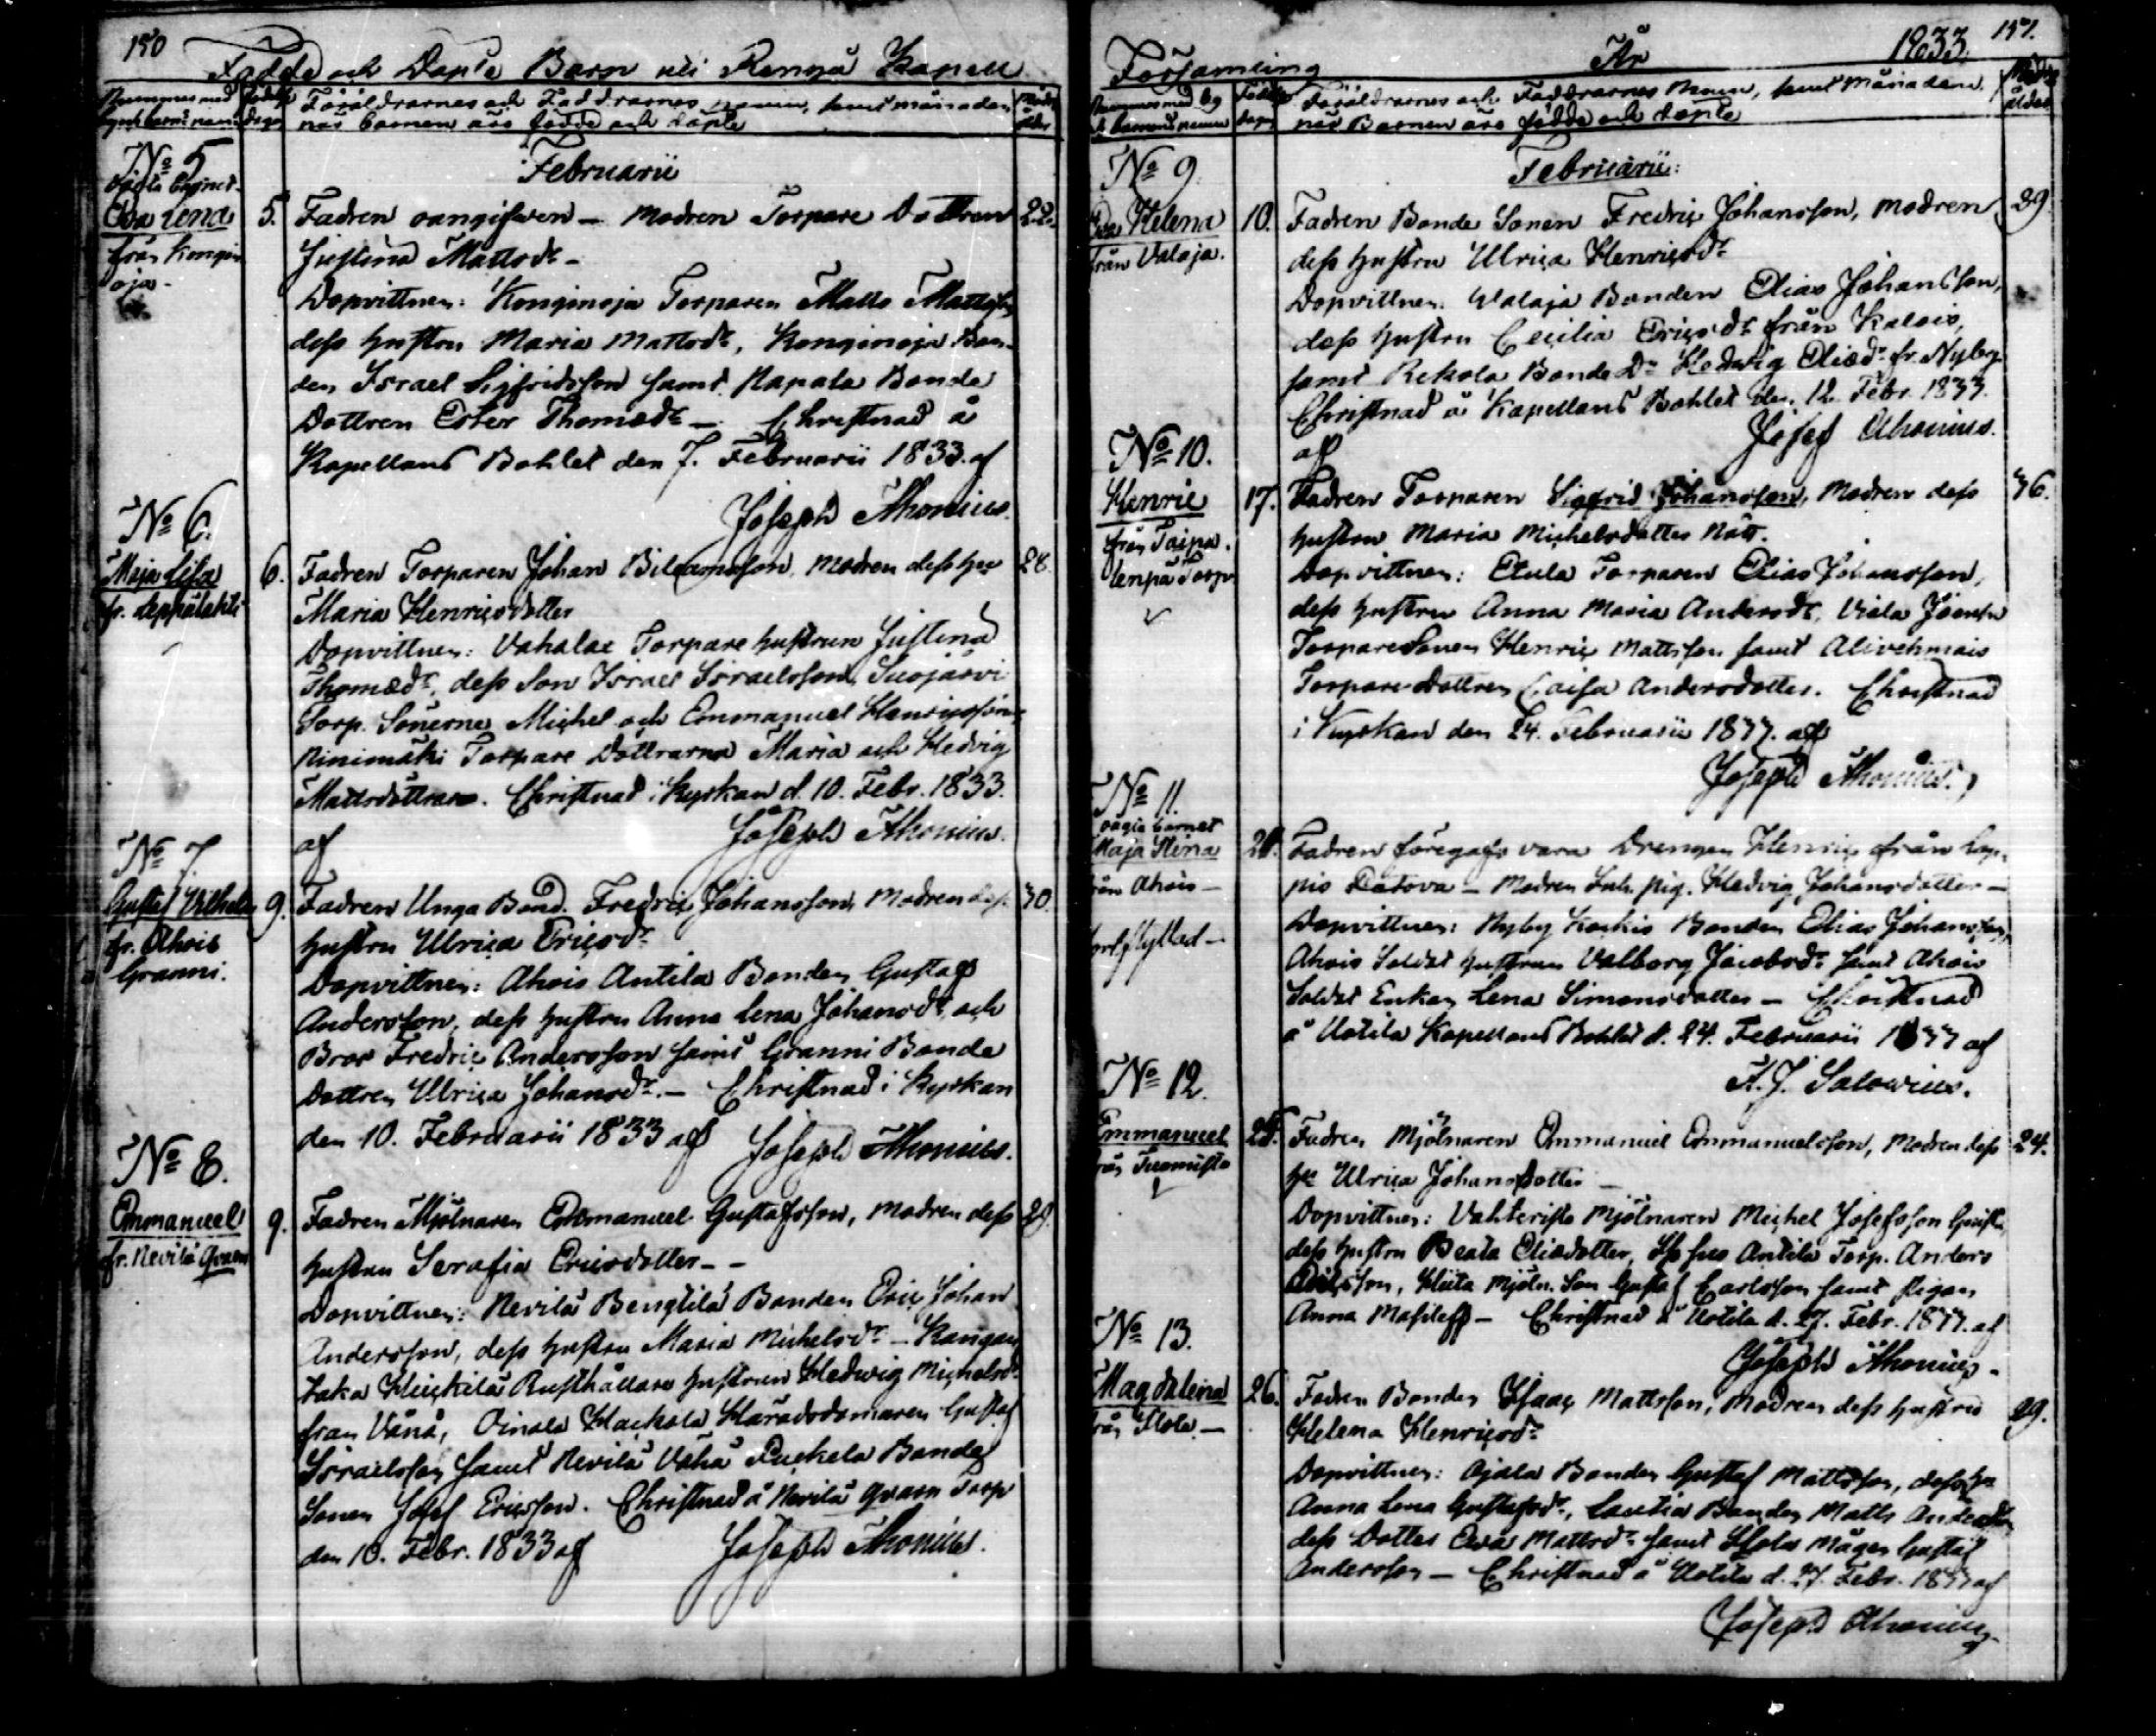 150
Födde och Döpte Barn uti Rengo Kapell
Föräldrarnes och Faddrarnes namn, samt månaden
när barnen äro födde och döpte
Februarii
No 5
oägta barnet
Eva Lena
från Konginoja
5. Fadren oangifwen – Modren Torpare Dottren 22.
Justina Mattsdr –
Dopvittnen: Konginoja Torparen Matts Mattsson
dess hustru Maria Mattsdr, Konginoja Bonden
Israel Sigfridsson samt Napala Bonde
Dottren Ester Thomædr – Christnad å
Kapellans Bohlet den 7. Februarii 1833. af
Joseph Ahonius.
No 6.
Maja Lisa
fr. Leppälahti
6. Fadren Torparen Johan Bileamsson, modren dess hu 28.
Maria Henricsdotter
Dopvittnen: Vahalax Torpare hustrun Justina
Thomædr, dess Son Israel Israelsson, Suojärvi
Torp. Sönerne Michel och Emmanuel Henricssöner
Ninimäki Torpare Döttrarna Maria och Hedvig
Mattsdöttrar. Christnad i Kyrkan d. 10. Febr. 1833.
af Joseph Ahonius.
No 7.
Gustaf Vilhelm
fr. Ahois
Granni.
9. Fadren Unga Bond. Fredric Johansson, Modren dess 30.
hustru Ulrica Ericsdr
Dopvittnen: Ahois Antila Bonden Gustaf
Andersson, dess hustru Anna Lena Johansdr och
Bror Fredric Andersson samt Granni Bonde
Dottren Ulrica Johansdr. – Christnad i Kyrkan
den 10. Februarii 1833 af Joseph Ahonius.
No 8.
Emmanuel
fr. Nevilä Qvarn
9. Fadren Mjölnaren Emmanuel Gustafsson, modren dess 29.
hustru Serafia Ericsdotter – –
Dopvittnen: Nevilä Bengtilä Bonden Eric Johan
Andersson, dess hustru Maria Michelsdr – Kangan
taka Heickilä Rusthållare hustrun Hedwig Michelsdr
från Vånå, Oinala Hackala Häradsdomaren Gustaf
Israelsson samt Nevilä Vähä Puckela Bonde
Sonen Josef Ericsson. Christnad å Nevilä Qvarn Torp
den 10. Febr. 1833 af Joseph Ahonius.
Församling År 1833. 151.
Föräldrarnes och Faddrarnes Namn, samt månaden
när Barnen äro födde och döpte
Februarii:
No 9.
Eva Helena
från Valaja.
10. Fadren Bonde Sonen Fredric Johansson, modren 29
dess hustru Ulrica Henricsdr
Dopvittnen: Walaja Bonden Elias Johansson,
dess hustru Cecilia Ericsdr från Kalois,
samt Rekola Bonde Dr Hedwig Eliædr fr. Nyby
Christnad å Kapellans Bohlet den 12. Febr. 1833.
af Josef Ahonius.
No 10.
Henric
från Taipa
17. Fadren Torparen Sigfrid Johansson, Modren dess 36.
hustru Maria Michelsdotter Nätt.
Dopvittnen: Torparen Elias Johansson,
dess hustru Anna Maria Andersdr, Viala
Torpare Sonen Henric Mattsson samt
Torpare dottren Caisa Andersdotter. Christnad
i Kyrkan den 24. Februarii 1833. af
Joseph Ahonius.
No 11.
oägta barnet
Maja Stina
från Ahois –
Fadren föregafs vara Drengen Henric från
Latova – Modren Inh. pig. Hedvig Johansdotter –
Dopvittnen: Nyby Bonden Elias Johansson,
Ahois Soldat hustrun Valborg Jacobsdr samt Ahois
Soldat Enkan Lena Simonsdotter – Christnad
å Uotila Kapellans Bohlet d. 24. Februarii 1833 af
F. J. Salowius.
No 12.
Emmanuel
från
25. Fadren Mjölnaren Emmanuel Emmanuelsson, Modren dess 24.
hu Ulrica Johansdotter –
Dopvittnen: Vahteristo Mjölnaren Michel Josefsson
dess hustru Beata Eliædotter, Antila Torp. Anders
Mjöln. Son Gustaf Carlsson samt Pigan
Anna – Christnad å Uotila d. 27. Febr. 1833. af
Joseph Ahonius.
No 13.
Magdalena
från Hola. –
26. Fadren Bonden Isaac Mattsson, Modren dess hustru 29.
Helena Henricsdr
Dopvittnen: Ojala Bonden Gustaf Mattsson, dess hu
Anna Lena Gustafsdr, Lautia Bonden Matts Andersson
dess Dotter Eva Mattsdr samt Hola Mågen Gustaf
Andersson – Christnad å Uotila d. 27. Febr. 1833 af
Joseph Ahonius